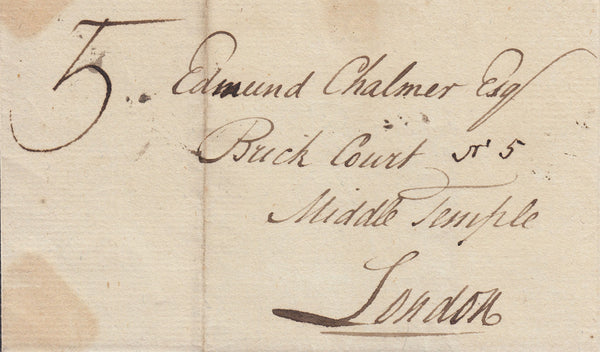 5 Edmund Chalmer Esqr
Brick Court No 5
Middle Temple
London